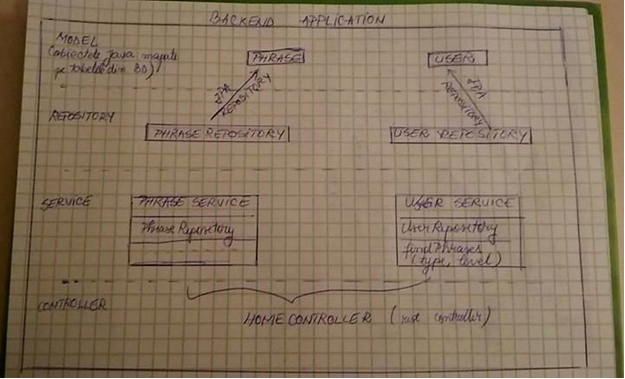 BACKEND APPLICATION
MODEL
(obiectele java mapate
pe tabelele din BD)
PHRASE
USER
JPA
REPOSITORY
JPA
REPOSITORY
REPOSITORY
PHRASE REPOSITORY
USER REPOSITORY
SERVICE
PHRASE SERVICE
PhraseRepository
USER SERVICE
UserRepository
findPhrases
(type, level)
CONTROLLER
HOME CONTROLLER (rest controller)